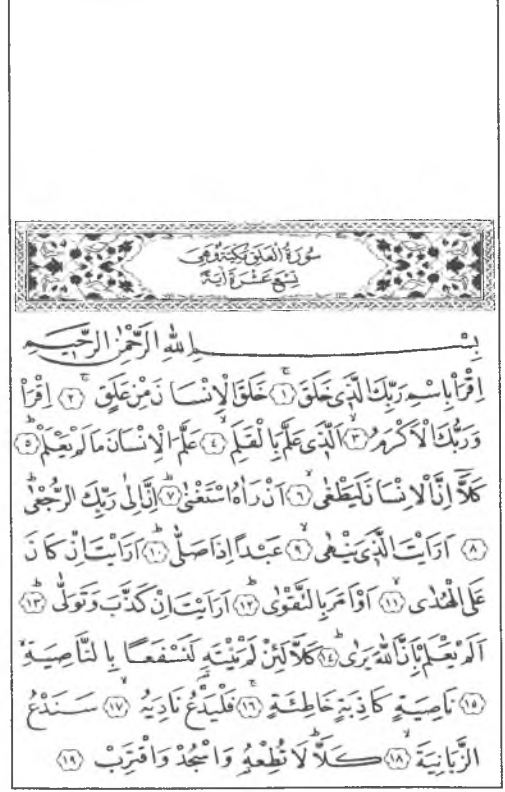 سُورَةُ الْعَلَقِ مَكِّيَّةٌ وَهِىَ
تِسْعَ عَشْرَةَ اٰيَةً
بِسْمِ اللّٰهِ الرَّحْمٰنِ الرَّحٖيمِ
اِقْرَأْ بِاسْمِ رَبِّكَ الَّذٖى خَلَقَۚ ﴿١﴾ خَلَقَ الْاِنْسَانَ مِنْ عَلَقٍۚ ﴿٢﴾ اِقْرَأْ
وَرَبُّكَ الْاَكْرَمُۙ ﴿٣﴾ اَلَّذٖى عَلَّمَ بِالْقَلَمِۙ ﴿٤﴾ عَلَّمَ الْاِنْسَانَ مَا لَمْ يَعْلَمْؕ ﴿٥﴾
كَلَّٓا اِنَّ الْاِنْسَانَ لَيَطْغٰىۙ ﴿٦﴾ اَنْ رَاٰهُ اسْتَغْنٰىؕ ﴿٧﴾ اِنَّ اِلٰى رَبِّكَ الرُّجْعٰىؕ
﴿٨﴾ اَرَاَيْتَ الَّذٖى يَنْهٰىۙ ﴿٩﴾ عَبْدًا اِذَا صَلّٰىؕ ﴿١٠﴾ اَرَاَيْتَ اِنْ كَانَ
عَلَى الْهُدٰىۙ ﴿١١﴾ اَوْ اَمَرَ بِالتَّقْوٰىؕ ﴿١٢﴾ اَرَاَيْتَ اِنْ كَذَّبَ وَتَوَلّٰىؕ ﴿١٣﴾
اَلَمْ يَعْلَمْ بِاَنَّ اللّٰهَ يَرٰىؕ ﴿١٤﴾ كَلَّا لَئِنْ لَمْ يَنْتَهِ لَنَسْفَعًا بِالنَّاصِيَةِۙ
﴿١٥﴾ نَاصِيَةٍ كَاذِبَةٍ خَاطِئَةٍۚ ﴿١٦﴾ فَلْيَدْعُ نَادِيَهُۙ ﴿١٧﴾ سَنَدْعُ
الزَّبَانِيَةَۙ ﴿١٨﴾ كَلَّاؕ لَا تُطِعْهُ وَاسْجُدْ وَاقْتَرِبْ ﴿١٩﴾